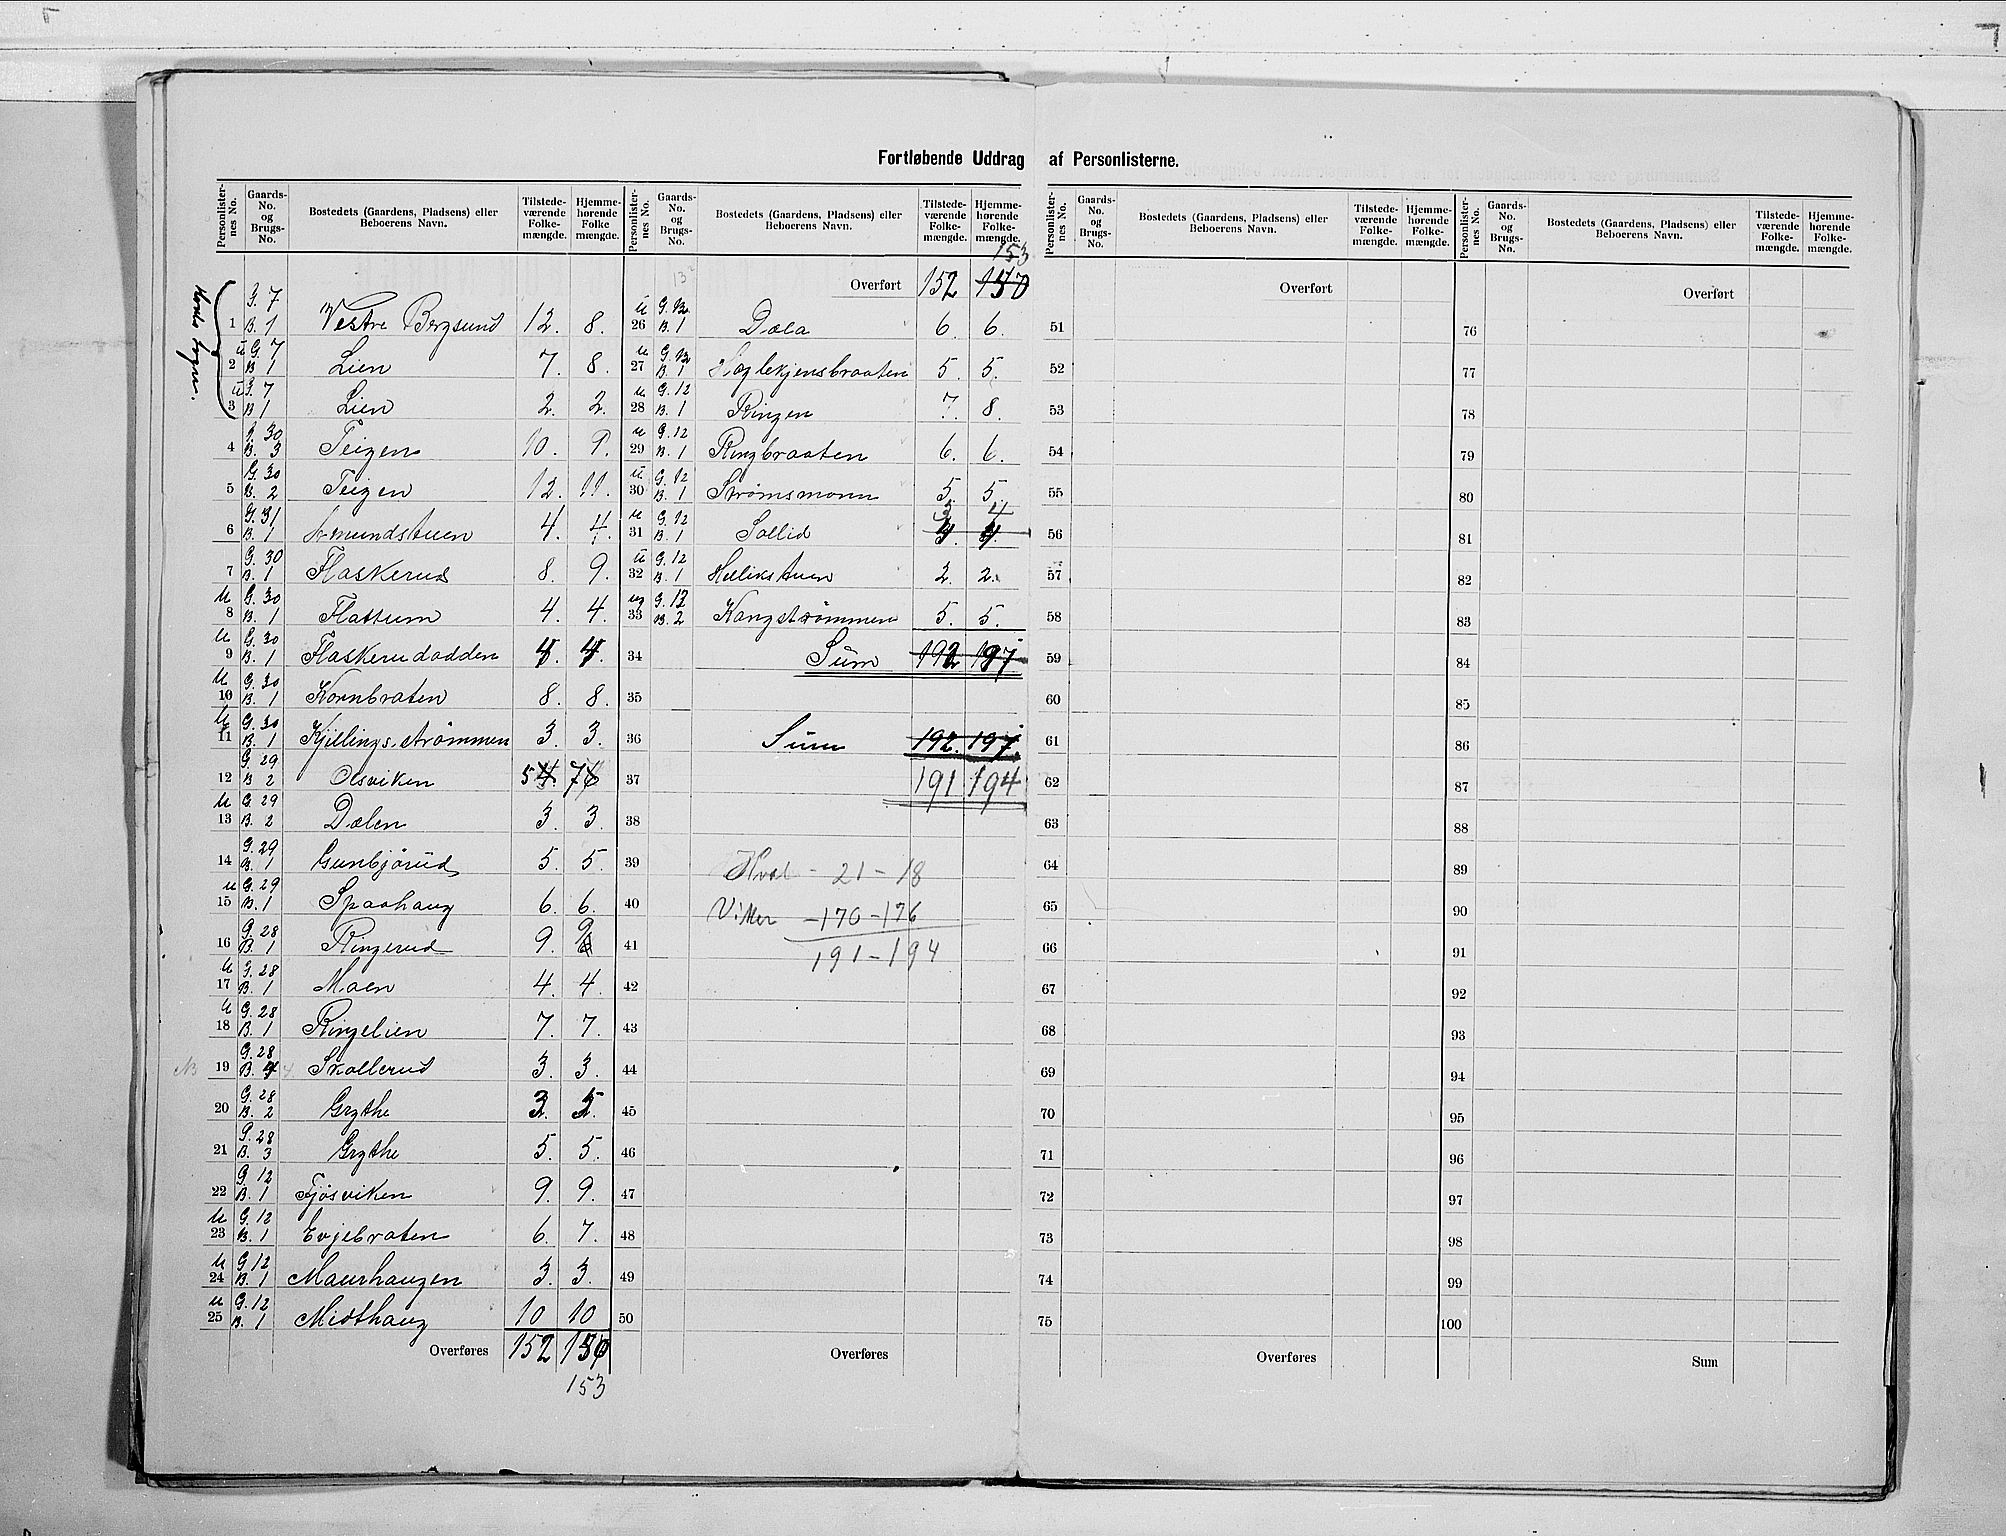 Fortløbende Uddrag af Personlisterne.
Personlister-nes No. | Gaards-No. og Brugs-No. | Bostedets (Gaardens, Pladsens) eller Beboerens Navn. | Tilstede-værende Folke-mængde. | Hjemme-hørende Folke-mængde.
1 G. 7 B. 1 Vestre Bergsund 12. 8.
u 2 G. 7 B 1 Lien 7. 8.
u 3 G. 7 B 1 Lien 2. 2.
4 G. 30 B. 3 Teigen 10. 9.
5 G. 30 B. 2 Teigen 12. 11.
6 G. 31 B. 1 Amundstuen 4. 4.
7 G. 30 B. 1 Flaskerud 8. 9.
u 8 G. 30 B. 1 Flattum 4. 4.
u 9 G. 30 B. 1 Flaskerudodden
u 10 G. 30 B. 1 Kornbraten 8. 8.
u 11 G. 30 B. 1 Kjillingsstrømmen 3. 3.
12 G. 29 B 2 Olsviken 5 7
u 13 G. 29 B. 2 Dælen 3. 3.
14 G. 29 B. 1 Gunbjörud 5. 5.
u 15 G. 29 B. 1 Spaahaug 6. 6.
16 G. 28 B. 1 Ringerud 9. 9
u 17 G. 28 B. 1 Moen 4. 4.
u 18 G. 28 B. 1 Ringelien 7. 7.
NB 19 G. 28 B. 4 Skollerud 3. 3.
20 G. 28 B. 2 Grythe
21 G. 28 B. 3 Grythe 5. 5.
22 G. 12 B. 1 Fjösviken 9. 9.
u 23 G. 12 B. 1 Evjebraten 6. 7.
u 24 G. 12 B. 1 Maurhaugen 3. 3.
u 25 G. 12 B. 1 Midthaug 10 10
Overføres 152
153
Personlister-nes No. | Gaards-No. og Brugs-No. | Bostedets (Gaardens, Pladsens) eller Beboerens Navn. | Tilstede-værende Folke-mængde. | Hjemme-hørende Folke-mængde.
153
Overført 152 150
u 26 G. 12 B. 1 Dæla 6. 6.
u 27 G. 12 B. 1 Haglekjensbraaten 5. 5.
u 28 G. 12 B. 1 Ringen 7. 8.
u 29 G. 12 B. 1 Ringbraaten 6. 6.
u 30 G. 12 B. 1 Strømsmoen 5. 5.
u 31 G. 12 B. 1 Sollid 3 4
u 32 G. 12 B. 1 Hellikstuen 2. 2.
33 G. 12 B. 2 Kangstrømmen 5. 5.
34 Sum 192 197
35
36 Sum 192. 197.
37 191 194
38
39 Hval - 21 - 18
40 Vikker - 170 - 176
41 191 - 194
42
43
44
45
46
47
48
49
50
Overføres
Personlister-nes No. | Gaards-No. og Brugs-No. | Bostedets (Gaardens, Pladsens) eller Beboerens Navn. | Tilstede-værende Folke-mængde. | Hjemme-hørende Folke-mængde.
Overført
51
52
53
54
55
56
57
58
59
60
61
62
63
64
65
66
67
68
69
70
71
72
73
74
75
Overføres
Personlister-nes No. | Gaards-No. og Brugs-No. | Bostedets (Gaardens, Pladsens) eller Beboerens Navn. | Tilstede-værende Folke-mængde. | Hjemme-hørende Folke-mængde.
Overført
76
77
78
79
80
81
82
83
84
85
86
87
88
89
90
91
92
93
94
95
96
97
98
99
100
Sum